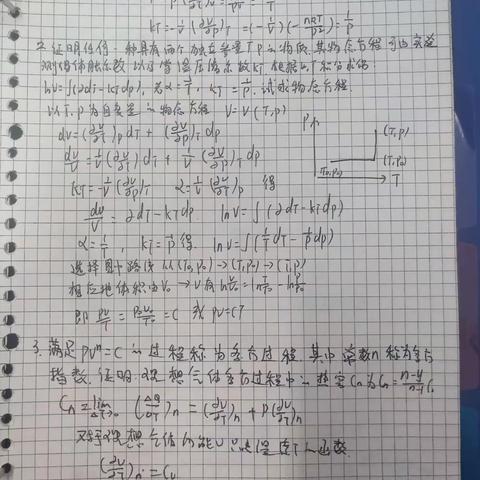 kT = -1/V (∂V/∂p)T = (-1/V)(-nRT/p²) = 1/p
2. 证明任何一种具有两个独立参量 T p 的物质,其物态方程可由实验
测得的体胀系数 以及等温压缩系数 kT 根据
lnV = ∫(αdT - kTdp), 若 α = 1/T, kT = 1/p, 试求物态方程.
以 T, p 为自变量 物态方程 V = V(T, p)
dV = (∂V/∂T)p dT + (∂V/∂p)T dp
dV/V = 1/V (∂V/∂T) dT + 1/V (∂V/∂p)T dp
kT = -1/V (∂V/∂p)T α = 1/V (∂V/∂T)p 得
dV/V = αdT - kT dp. lnV = ∫(αdT - kTdp)
α = 1/T, kT = 1/p 得. lnV = ∫(1/T dT - 1/p dp)
选择图中路线 从(T0, p0) → (T, p0) → (T, p)
相应地体积由 V0 → V 有 ln V/V0 = ln T/T0 - ln p/p0
即 pV/T = p0V0/T0 = C 或 pV = CT
p
(T, p)
(T0, p0)
(T, p0)
T
3. 满足 pVⁿ = C 的过程称为多方过程 其中常数 n 称为多方
指数. 证明: 理想气体多方过程中 热容 Cn 为 Cn = (n-γ)/(n-1) Cv
Cn = lim ΔT→0 (ΔQ/ΔT)n = (∂U/∂T)n + p(∂V/∂T)n
对于理想气体 内能 U 只是温度 T 的函数
(∂U/∂T)n = Cv